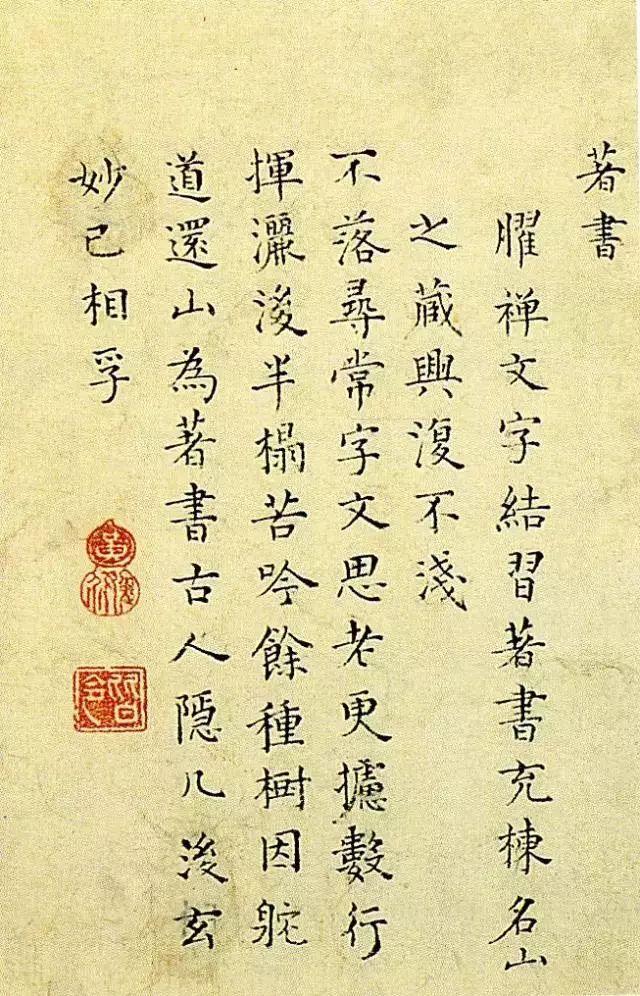 著書
臞禅文字結習著書充棟名山
之蔵興復不淺
不落尋常字文思老更攄數行
揮灑後半榻苦吟餘種樹因
道還山為著書古人隱几後玄
妙已相孚